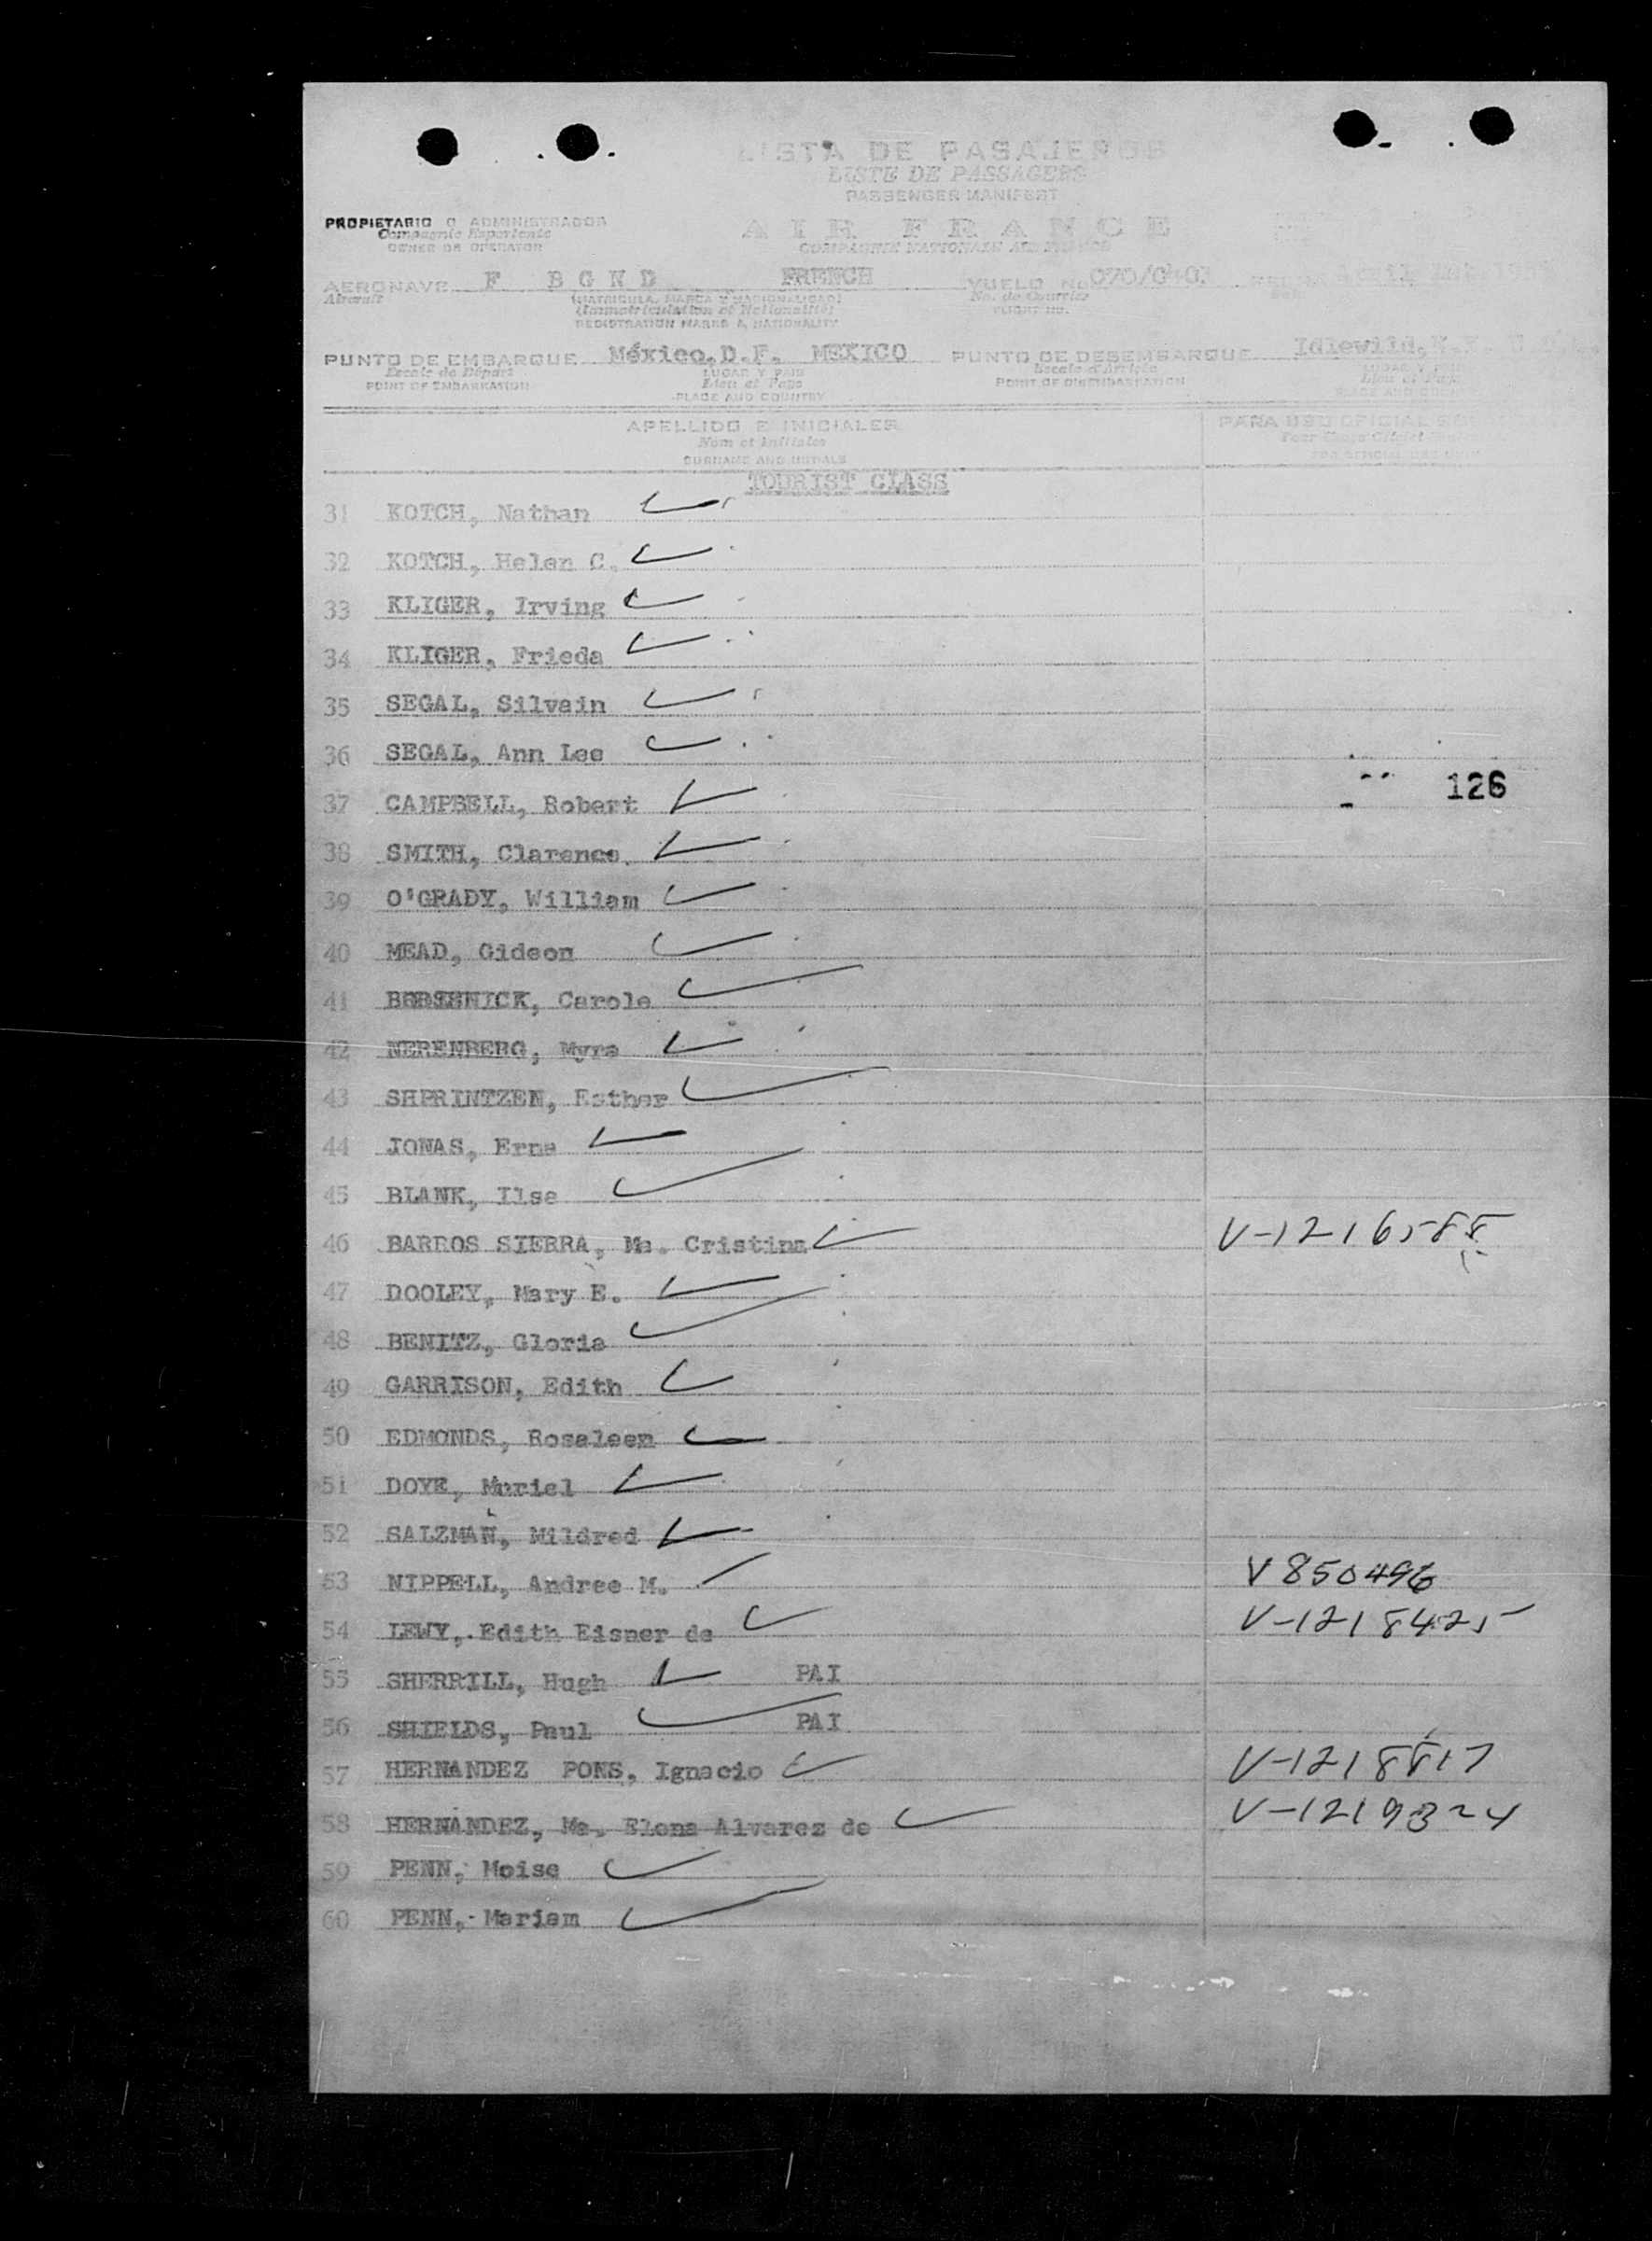 LISTA DE PASAJEROS
LISTE DE PASSAGERS
PASSENGER MANIFEST
PROPIETARIO O ADMINISTRADOR
AIR FRANCE
OWNER OR OPERATOR
COMPAGNIE NATIONALE AIR FRANCE
AERONAVE F BGND FRENCH VUELO No. 070/0403
Aircraft (MATRICULA, MARCA Y NACIONALIDAD) No. de Courrier
(Immatriculation et Nationalité) FLIGHT NO.
REGISTRATION MARKS & NATIONALITY
PUNTO DE EMBARQUE México, D.F. MEXICO PUNTO DE DESEMBARQUE Idlewild, N.Y.
Escale de Départ LUGAR Y PAIS Escale d'Arrivée LUGAR Y PAIS
POINT OF EMBARKATION Lieu et Pays POINT OF DISEMBARKATION Lieu et Pays
PLACE AND COUNTRY
APELLIDO E INICIALES PARA USO OFICIAL
Nom et Initiales
SURNAME AND INITIALS
TOURIST CLASS
31 KOTCH, Nathan
32 KOTCH, Helen C.
33 KLIGER, Irving
34 KLIGER, Frieda
35 SEGAL, Silvain
36 SEGAL, Ann Lee
126
37 CAMPBELL, Robert
38 SMITH, Clarence
39 O'GRADY, William
40 MEAD, Gideon
41 Carole
42 NERENBERG, Myra
43 SHPRINTZEN, Esther
44 JONAS, Erna
45 BLANK, Ilse
46 BARROS SIERRA, Ma. Cristina V-1216588
47 DOOLEY, Mary E.
48 BENITZ, Gloria
49 GARRISON, Edith
50 EDMONDS, Rosaleen
51 DOYE, Muriel
52 SALZMAN, Mildred
53 NIPPELL, Andree M. V 850496
54 LEWY, Edith Eisner de V-1218425
55 SHERRILL, Hugh PAI
56 SHIELDS, Paul PAI
57 HERNANDEZ PONS, Ignacio V-1218817
58 HERNANDEZ, Ma. Elena Alvarez de V-1219324
59 PENN, Moise
60 PENN, Mariam